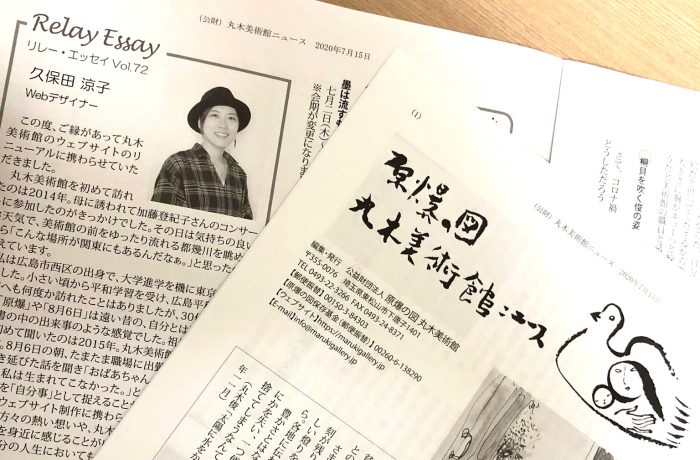 （公財）丸木美術館ニュース　2020年7月15日
Relay Essay
リレー・エッセイ Vol.72
久保田 涼子
Webデザイナー
この度、ご縁があって丸木
美術館のウェブサイトのリ
ニューアルに携わらせていた
だきました。
丸木美術館を初めて訪れ
たのは2014年。母に誘われて加藤登紀子さんのコンサー
に参加したのがきっかけでした。その日は気持ちの良い
天気で、美術館の前をゆったり流れる都幾川を眺め
「こんな場所が関東にもあるんだなぁ。」と思った
えています。
私は広島市西区の出身で、大学進学を機に東京
した。小さい頃から平和学習を受け、広島平
へも何度か訪れたことはありましたが、30
「原爆」や「8月6日」は遠い昔の、自分とは
書の中の出来事のような感覚でした。祖
初めて聞いたのは2015年。丸木美術館
8月6日の朝、たまたま職場に出
き延びた話を聞き「おばあちゃん
私は生まれてこなかった。」と
を「自分事」として捉えること
ウェブサイト制作に携わら
方々の熱い想いや、丸木
を身近に感じることが
分の人生においても
墨は流すも
七月二日（木）〜
※会期が変更になりま
(1)
原爆の図
丸木美術館ニュース
編集・発行　公益財団法人 原爆の図 丸木美術館
〒355-0076　埼玉県東松山市下唐子1401
TEL 0493-22-3266 FAX 0493-24-8371
【郵便振替】00150-3-84303
【原爆の図保存基金（郵便振替）】00260-6-138290
【ウェブサイト】https://marukigallery.jp
【E-mail】info@marukigallery.jp
（公財）丸木美術館ニュース　2020年7月15日
さて、コロナ禍
どうしただろう